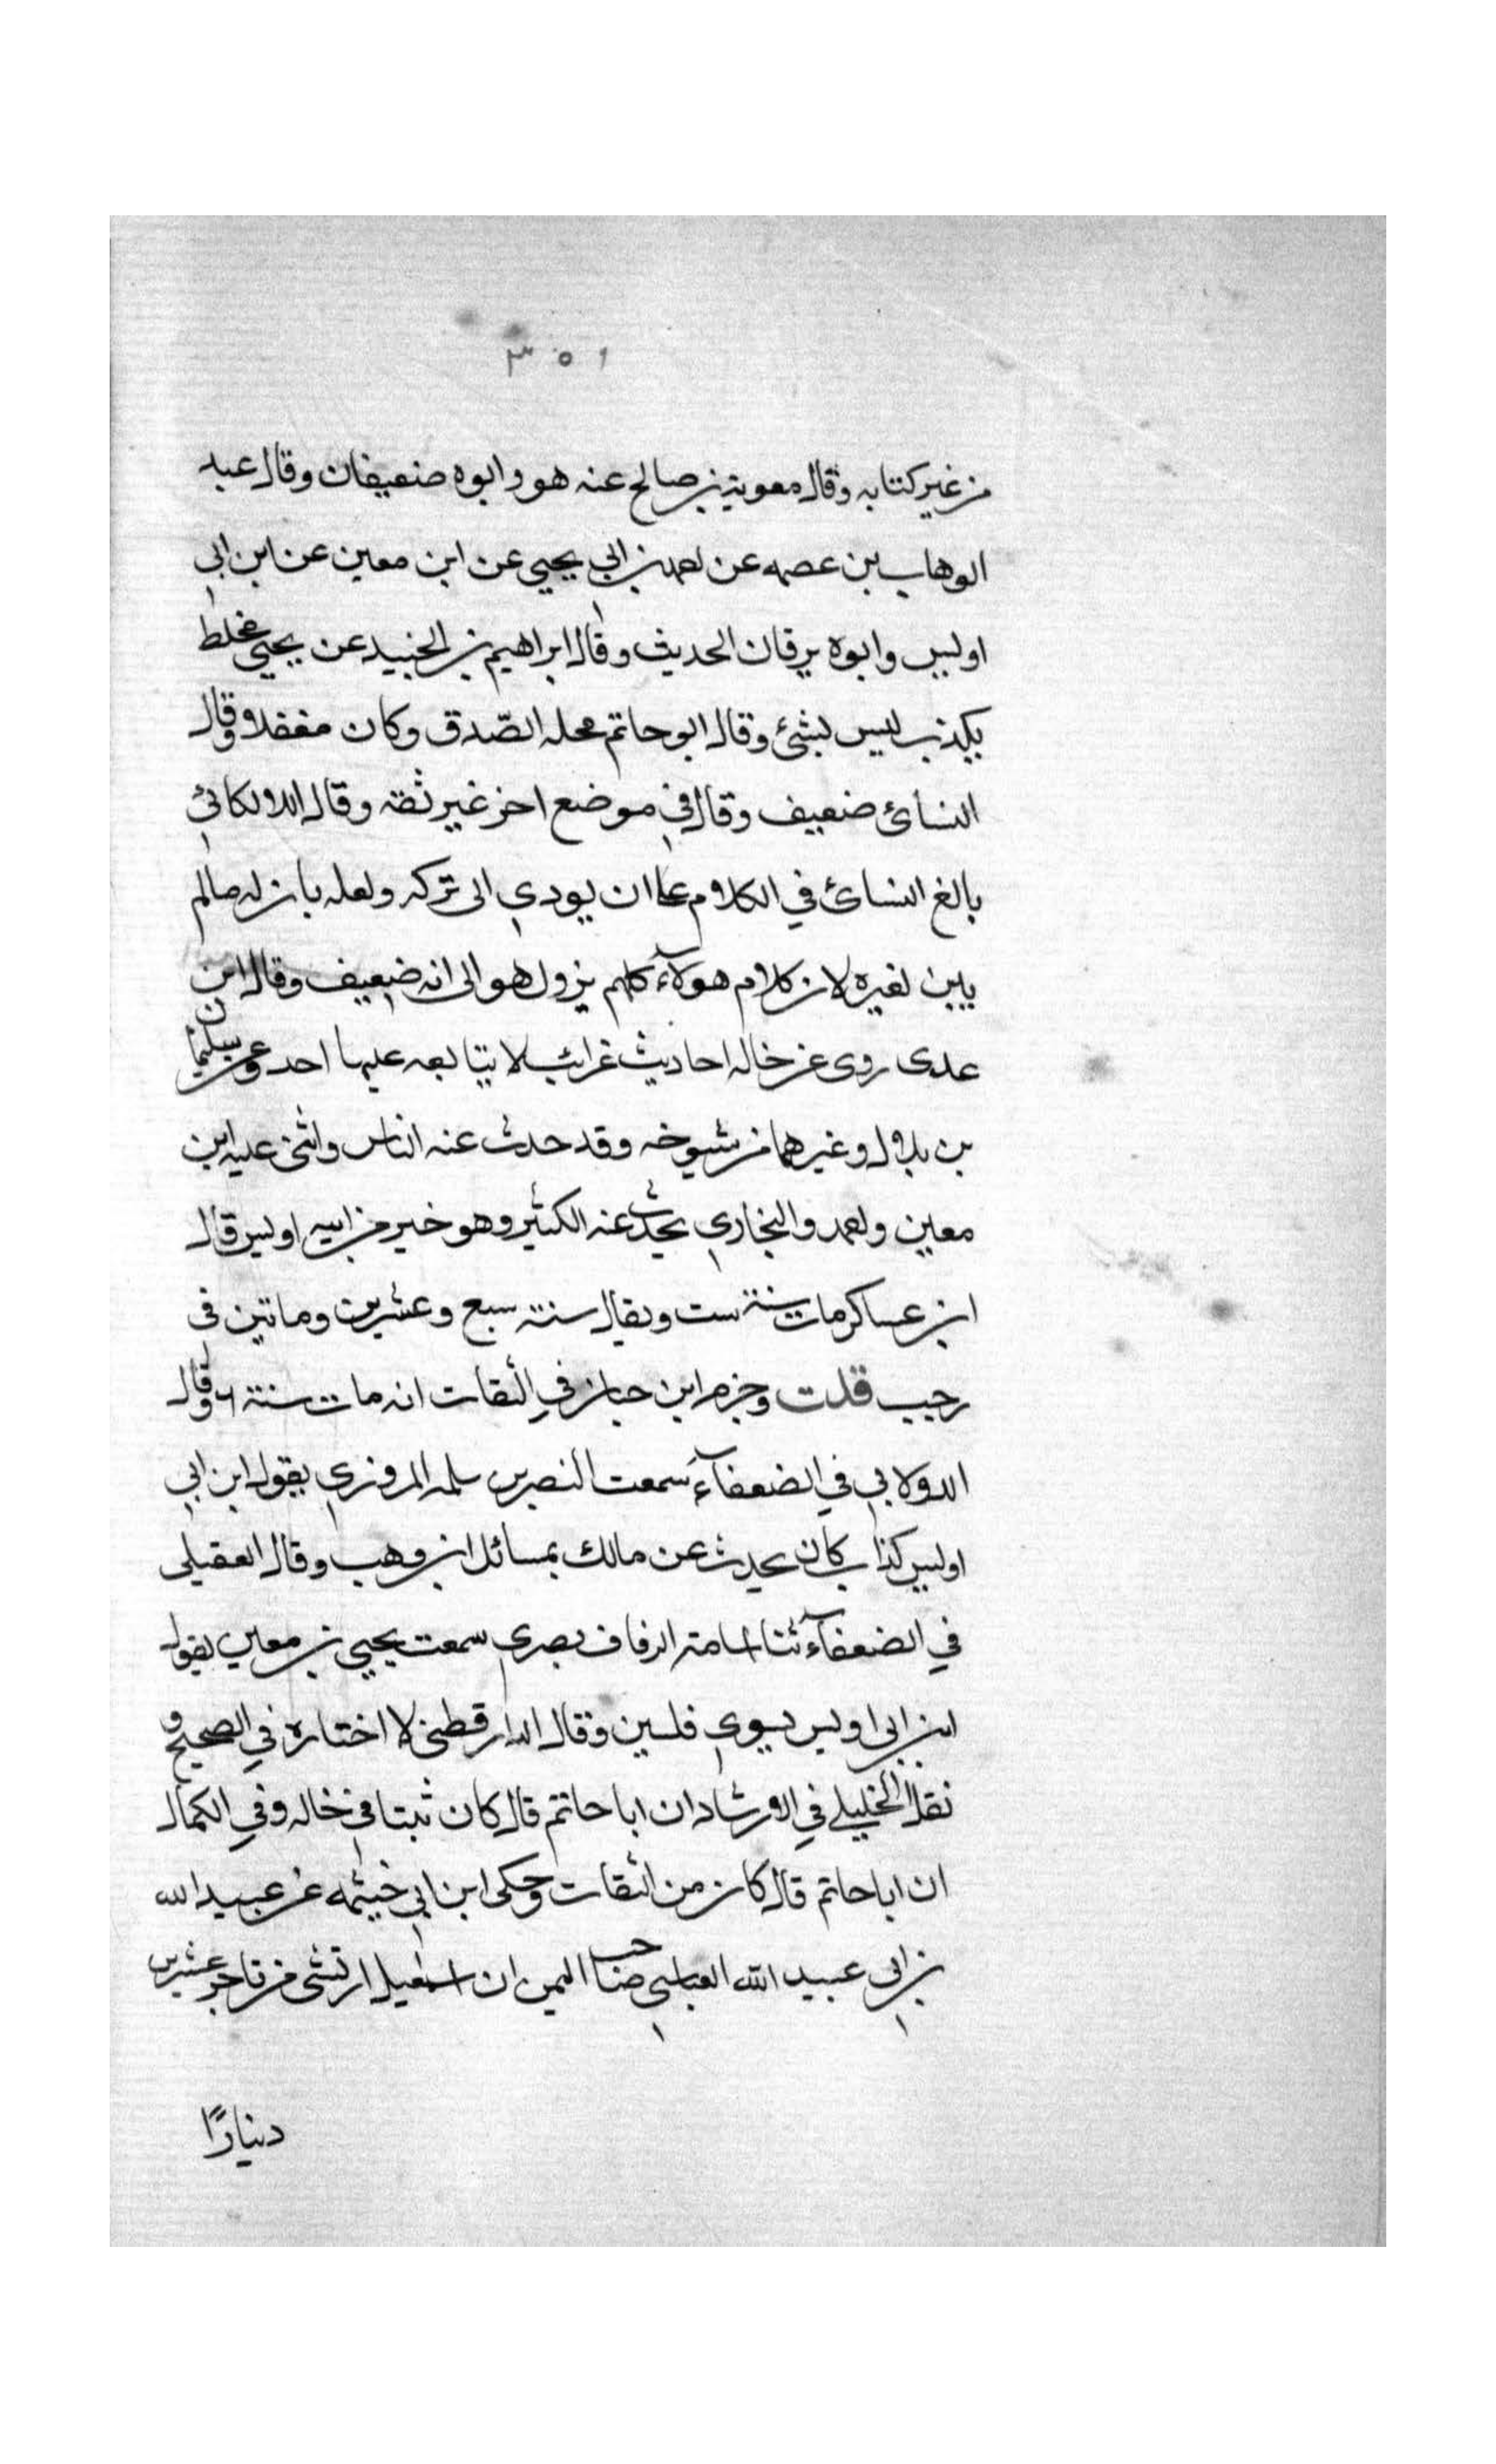 ٣٥١
من غير كتابه وقال معوية بن صالح عنه هو وابوه ضعيفان وقال عبد
الوهاب بن عصمه عن احمد بن ابي يحيي عن ابن معين عن ابن ابي
اويس وابوه يرقان الحديث وقال ابراهيم بن الجنيد عن يحيي مخلط
يكذب ليس بشئ وقال ابو حاتم محله الصّدق وكان مغفلا وقال
النسائ ضعيف وقال في موضع اخر غير ثقه وقال اللالكائئ
بالغ النسائ في الكلام علي ان يودي الى تركه ولعله بان له مالم
يبين لغيره لان كلام هولآء كلهم يزول هو الى انه ضعيف وقال ابن
عدى روى عن خاله احاديث غرائب لا يتابعه عليها احد وعن سليمان
بن بلال وغيرهما من شيوخه وقد حدث عنه الناس واثنى عليه ابن
معين واحمد والبخاري يحدث عنه الكثير وهو خير من ابيه اويس قال
ابن عساكر مات سنة ست ويقال سنة سبع وعشرين وماتين في
رجب قلت وجزم ابن حبان في الثقات انه مات سنة ٦ وقال
الدولابي في الضعفآء سمعت النصر بن سلمه المروزي يقول ابن ابي
اويس كذاب كان يحدث عن مالك بمسائل ابن وهب وقال العقيلى
في الضعفآء ثنا اسامة الرفاف بصري سمعت يحيي بن معين يقول
ابن ابي اويس يسوي فلسين وقال الدارقطني لا اختاره في الصحيح و
نقل الخليلي في الارشاد ان ابا حاتم قال كان ثبتا في خاله وفي الكمال
ان ابا حاتم قال كان من الثقات وحكى ابن ابي خيثمه عن عبيد الله
بن ابي عبيد الله العباسي صاحب اليمن ان اسمعيل ارتشى من تاجر عشرين
دينارًا